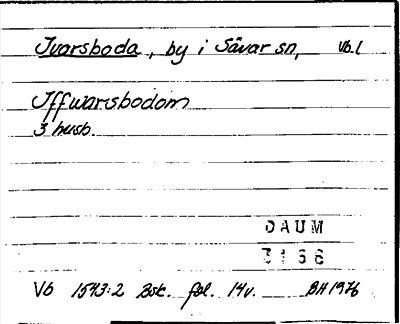 Ivarsboda, by i Sävar sn, Vb.l
Iffwarsbodom
3 husb.
DAUM
3166
Vb 1543:2 Bsk. fol. 14v. BH 1976